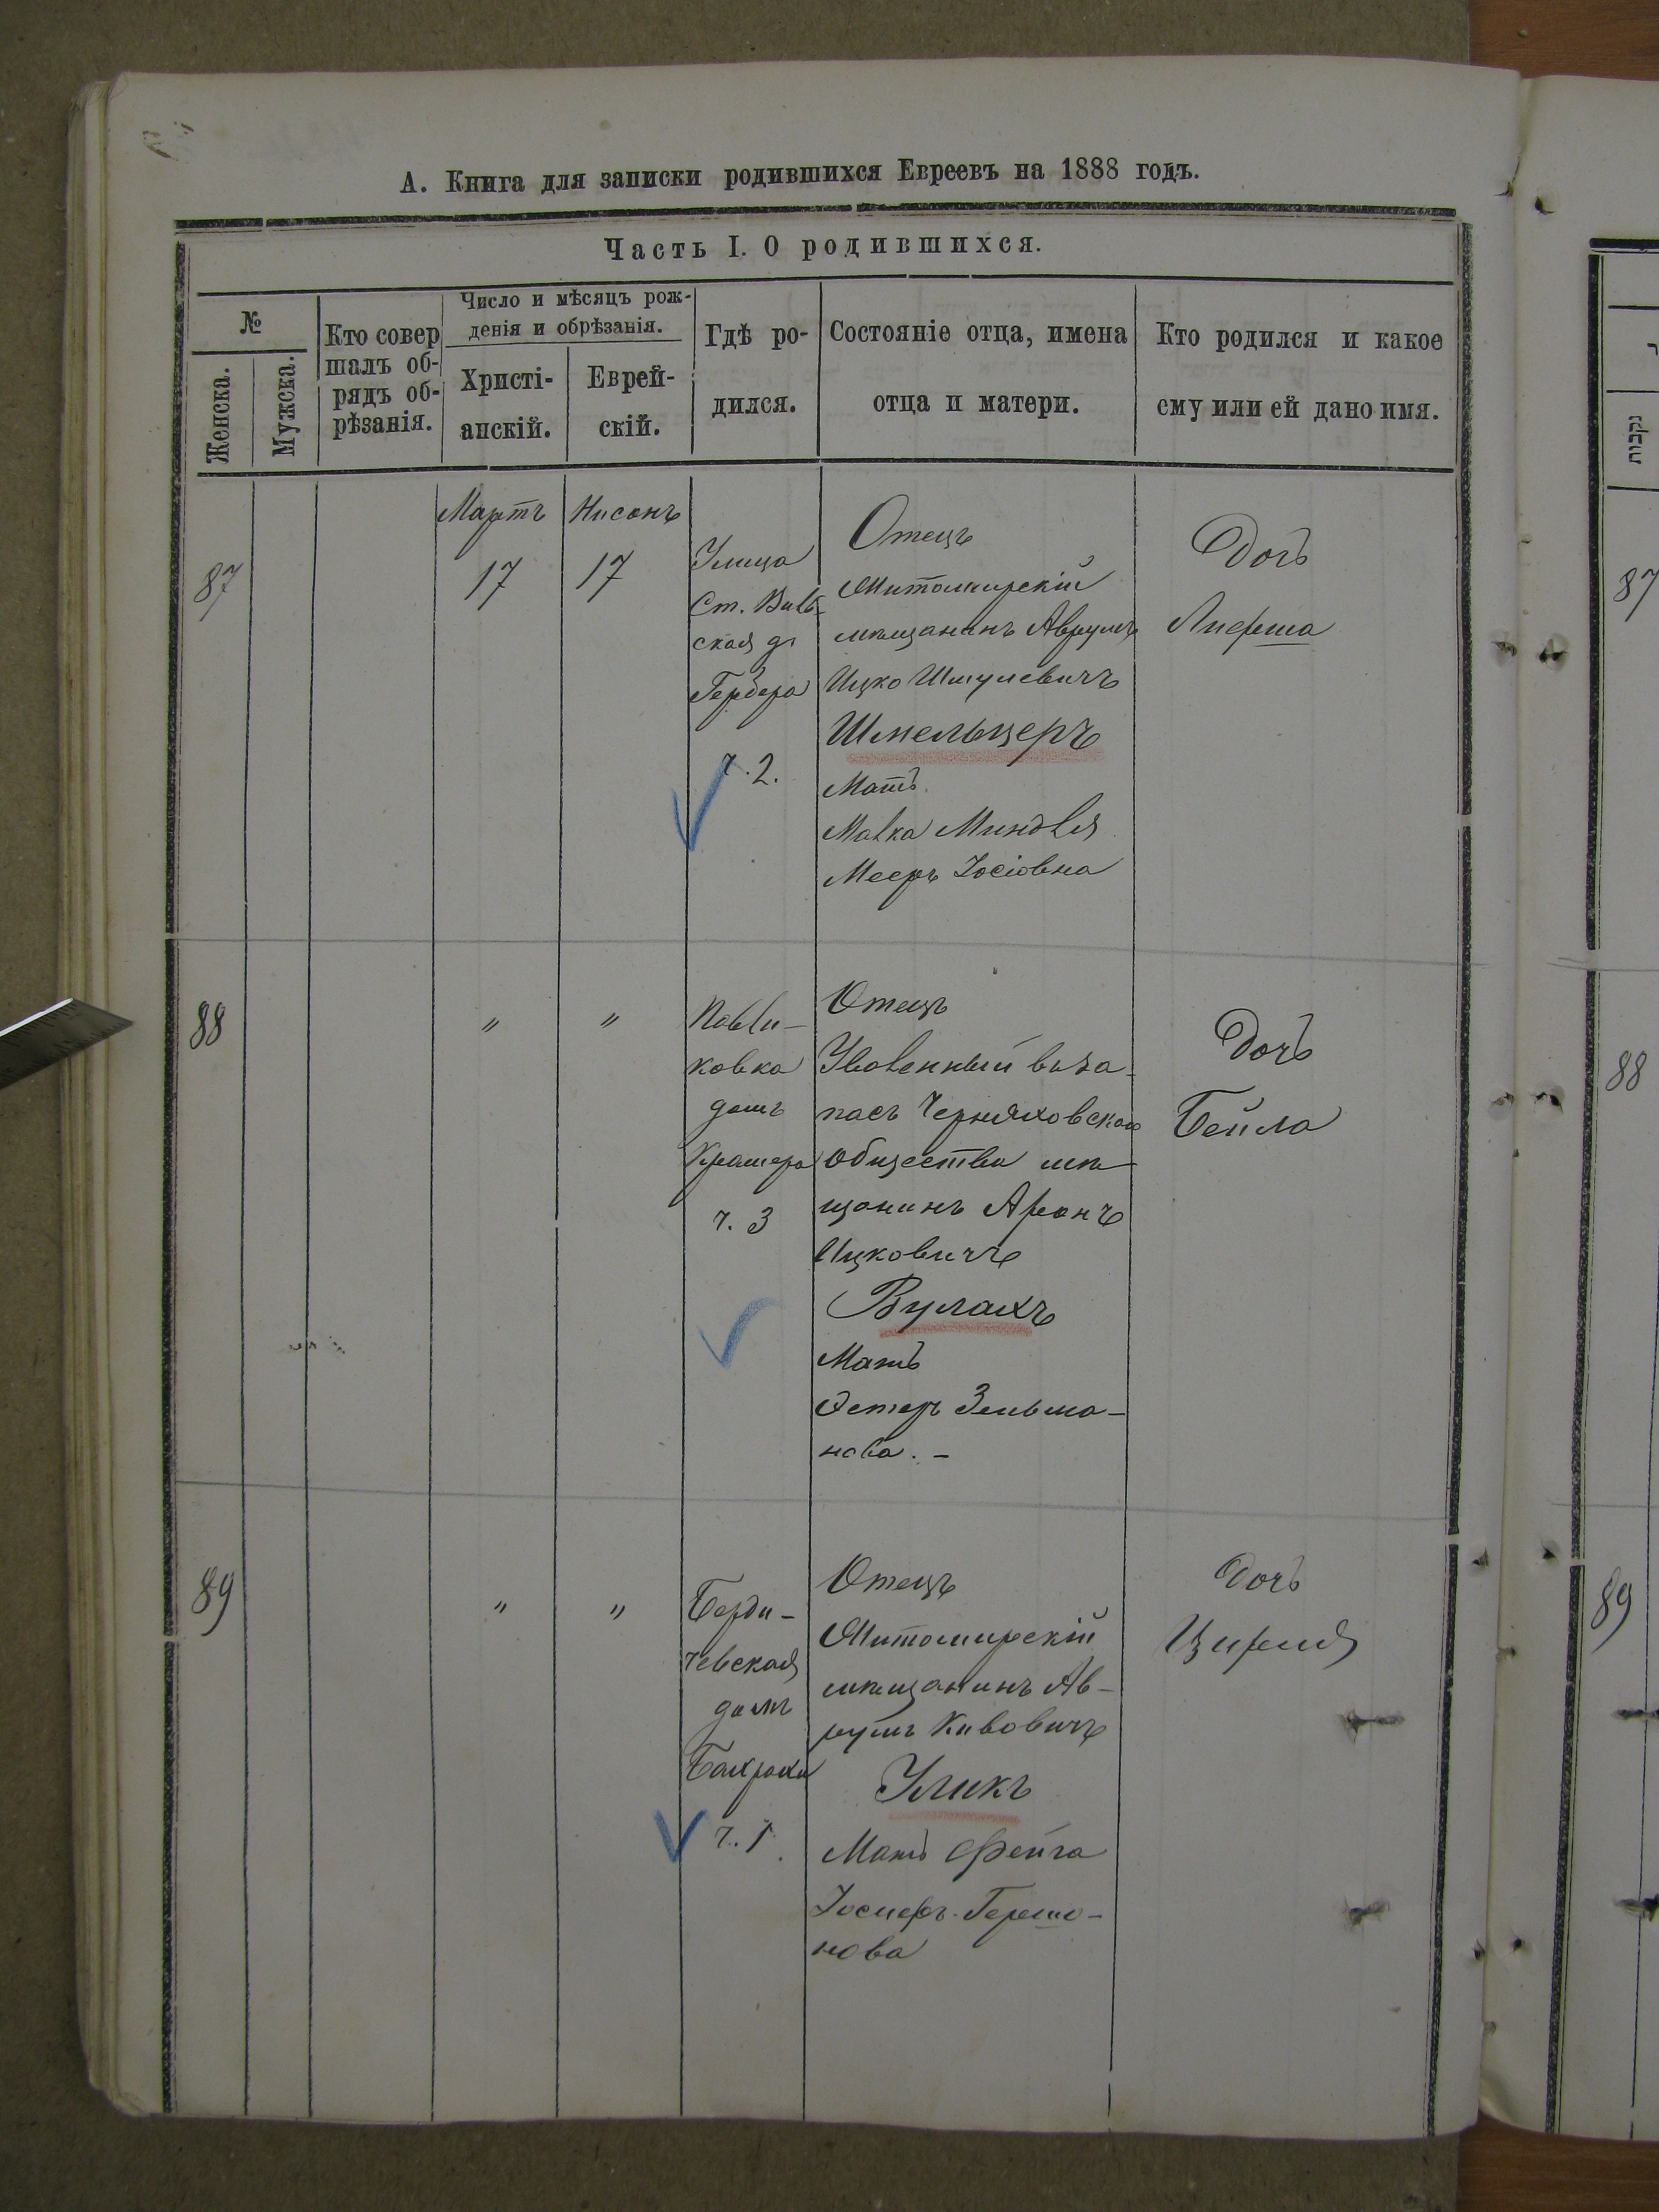 А. Книга для записки родившихся Евреевъ на 1888 годъ.
Часть I. О родившихся.
№
Женска.
Мужска.
Кто совер
шалъ об-
рядъ об-
рѣзанія.
Число и мѣсяцъ рож-
денія и обрѣзанія.
Христі-
анскій.
Еврей-
скій.
Гдѣ ро-
дился.
Состояніе отца, имена
отца и матери.
Кто родился и какое
ему или ей дано имя.
87
Мартъ
17
Нисонъ
17
Улица
Ст. Виль
ская д.
Гербера
ч. 2.
Отецъ
Житомирскій
мѣщанинъ Аврумъ
Ицко Шмулевичъ
Шмельцеръ
Мать
Малка Миндля
Мееръ Іосіовна
Дочь
88
"
"
ковка
домъ
Крамера
ч. 3
Отецъ
Уволенный въ за-
пасъ Черняховскаго
общества мѣ-
щанинъ Аронъ
Ицковичъ
Вулахъ
Мать
Эстеръ Зельма-
нова. -
Дочь
Бейла
89
"
"
Берди-
чевская
домъ
Бахраха
ч. 1.
Отецъ
Житомирскій
мѣщанинъ Ав-
румъ Кивовичъ
Уликъ
Мать Фейга
Іосифъ-Гершо-
нова
Дочь
Цирля
נקבות
87
88
89